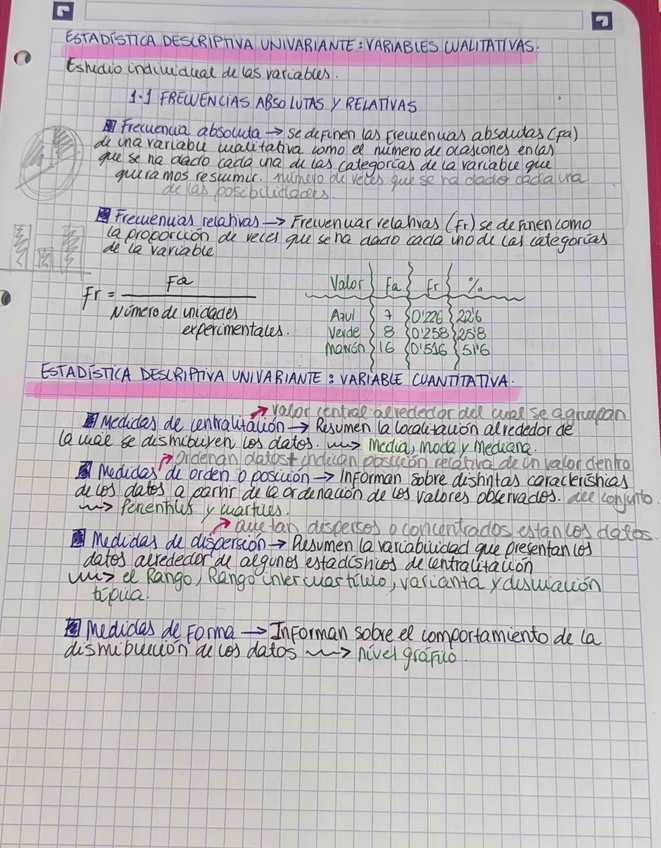 ESTADÍSTICA DESCRIPTIVA UNIVARIANTE: VARIABLES CUALITATIVAS.
Estudio individual de las variables.
1.1 FRECUENCIAS ABSOLUTAS Y RELATIVAS
Frecuencia absoluta → se definen las frecuencias absolutas (fa)
de una variable cualitativa como el número de ocasiones en las
que se ha dado cada una de las categorías de la variable que
queramos resumir. número de veces que se ha dado cada una
de las posibilidades.
Frecuencias relativas → Frecuencias relativas (Fr) se definen como
la proporción de veces que se ha dado cada uno de las categorías
de la variable
Fr = Fa / Número de unidades experimentales.
Valor Fa Fr %
Azul 7 0'226 22'6
Verde 8 0'258 25'8
Marrón 16 0'516 51'6
ESTADÍSTICA DESCRIPTIVA UNIVARIANTE: VARIABLE CUANTITATIVA.
→ valor central alrededor del cual se agrupan
Medidas de centralización → Resumen la localización alrededor de
la cual se distribuyen los datos. → Media, Moda y Mediana.
→ ordenan datos + indican posición relativa de un valor dentro
Medidas de orden o posición → Informan sobre distintas características
de los datos a partir de la ordenación de los valores observados. del conjunto.
→ Percentiles y cuartiles.
→ que tan dispersos o concentrados estan los datos.
Medidas de dispersión → Resumen la variabilidad que presentan los
datos alrededor de algunos estadísticos de centralización
→ el Rango, Rango intercuartílico, varianza y desviación
típica.
Medidas de Forma → Informan sobre el comportamiento de la
distribución de los datos → nivel gráfico.